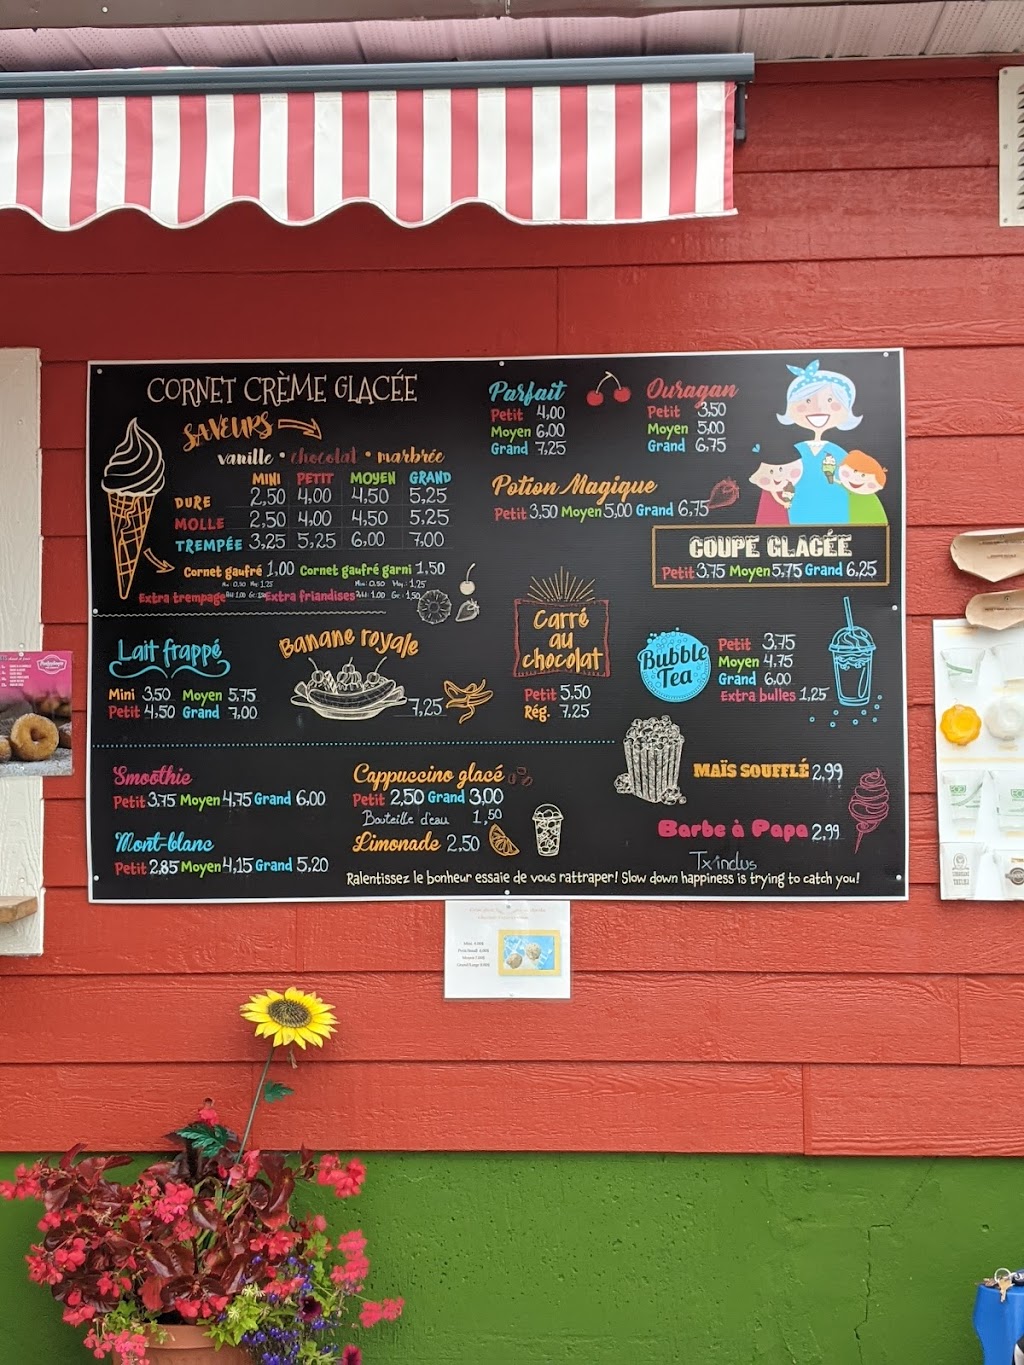 CORNET CRÈME GLACÉE
SAVEURS
vanille • chocolat • marbrée
MINI PETIT MOYEN GRAND
DURE 2,50 4,00 4,50 5,25
MOLLE 2,50 4,00 4,50 5,25
TREMPÉE 3,25 5,25 6,00 7,00
Cornet gaufré 1,00 Cornet gaufré garni 1,50
Extra trempage
Extra friandises
Parfait
Petit 4,00
Moyen 6,00
Grand 7,25
Ouragan
Petit 3,50
Moyen 5,00
Grand 6,75
Potion Magique
Petit 3,50 Moyen 5,00 Grand 6,75
COUPE GLACÉE
Petit 3,75 Moyen 5,75 Grand 6,25
Lait frappé
Mini 3,50 Moyen 5,75
Petit 4,50 Grand 7,00
Banane royale
7,25
Carré
au
chocolat
Petit 5.50
Rég. 7,25
Bubble
Tea
Petit 3,75
Moyen 4,75
Grand 6,00
Extra bulles 1,25
Smoothie
Petit 3,75 Moyen 4,75 Grand 6,00
Mont-blanc
Petit 2,85 Moyen 4,15 Grand 5,20
Cappuccino glacé
Petit 2,50 Grand 3,00
Bouteille d'eau 1,50
Limonade 2,50
MAÏS SOUFFLÉ 2,99
Barbe à Papa 2,99
Tx inclus
Ralentissez le bonheur essaie de vous rattraper! Slow down happiness is trying to catch you!